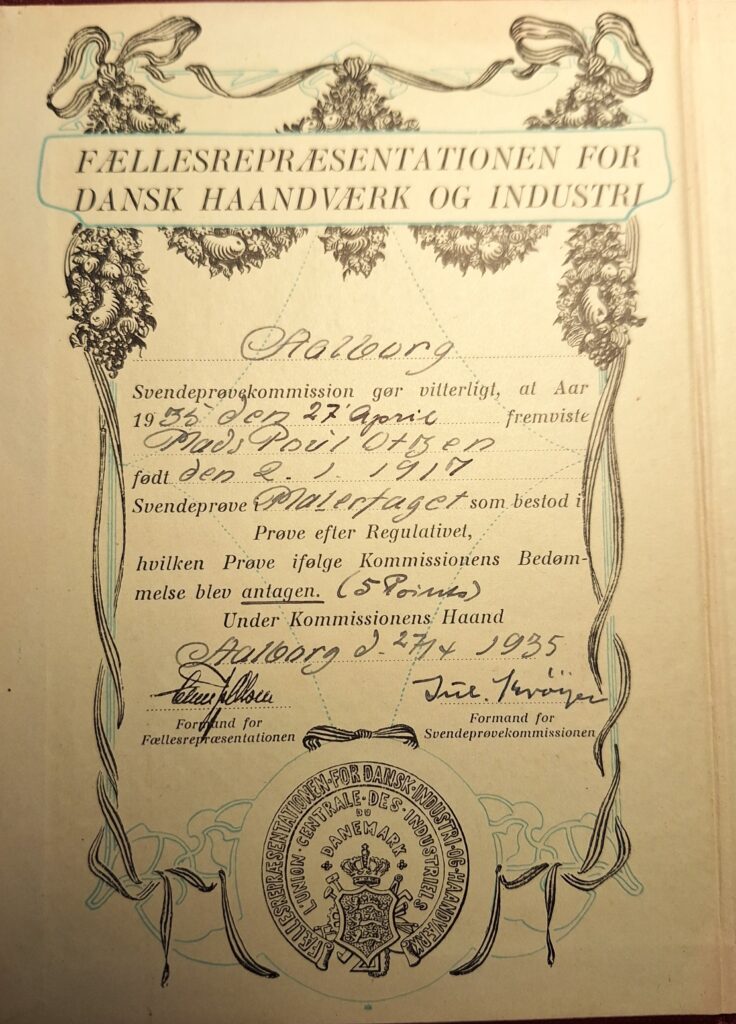 FÆLLESREPRÆSENTATIONEN FOR
DANSK HAANDVÆRK OG INDUSTRI
Aalborg
Svendeprøvekommission gør vitterligt, at Aar
1935 den 27 April fremviste
Mads Poul Otzen
født den 2. 1. 1917
Svendeprøve i Malerfaget som bestod i
Prøve efter Regulativet,
hvilken Prøve ifølge Kommissionens Bedøm-
melse blev antagen. (5 Points)
Under Kommissionens Haand
Aalborg d. 27/4 1935
Jul. Krøijer
Formand for
Fællesrepræsentationen
Formand for
Svendeprøvekommissionen
FÆLLESREPRÆSENTATIONEN·FOR·DANSK·INDUSTRI·OG·HAANDVÆRK
L'UNION·CENTRALE·DES·INDUSTRIELS
DU
DANEMARK